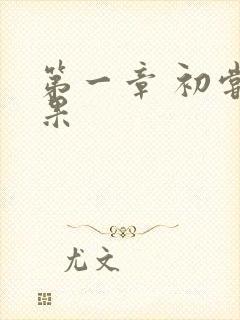 第一章 初尝
果
尤文